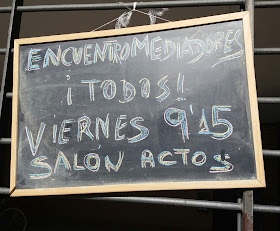 ENCUENTRO MEDIADORES
¡TODOS!
VIERNES 9'15
SALÓN ACTOS